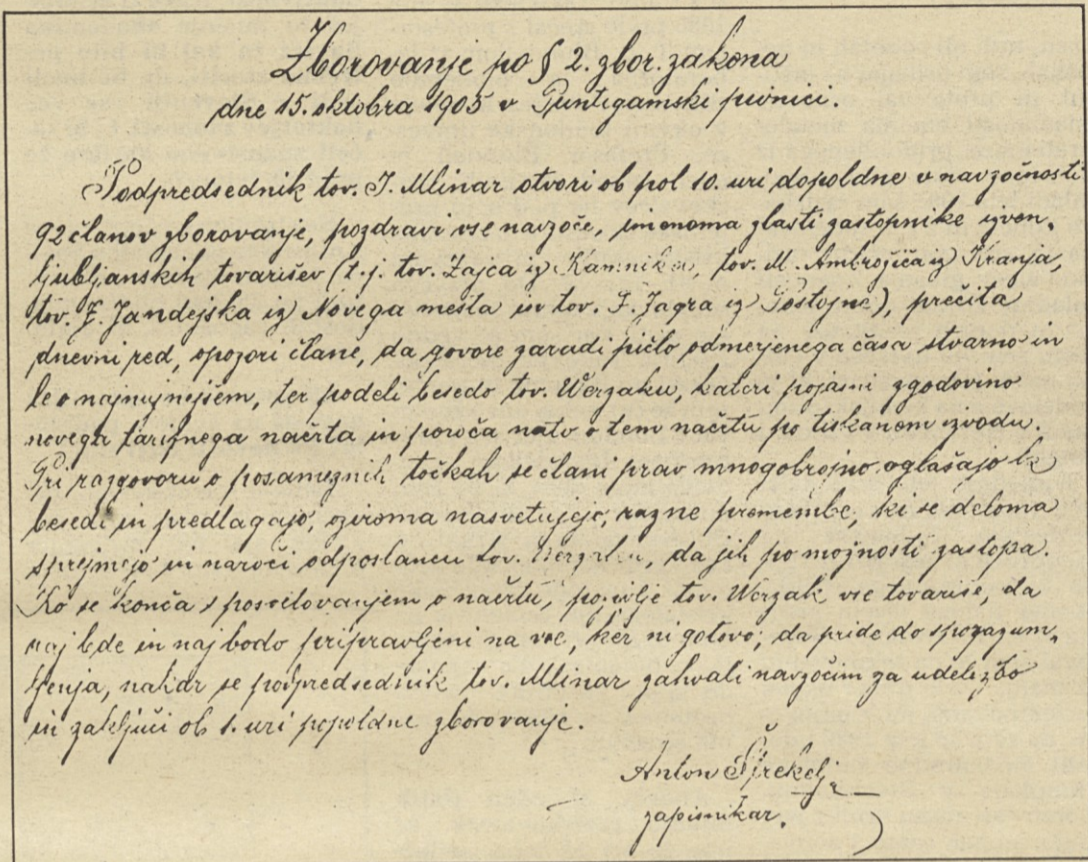 Zborovanje po § 2. zbor. zakona
dne 15. oktobra 1905 v Puntigamski pivnici.
Podpredsednik tov. I. Mlinar otvori ob pol 10. uri dopoldne v navzočnosti
92 članov zborovanje, pozdravi vse navzoče, imenoma zlasti zastopnike izven-
ljubljanskih tovarišev (t. j. tov. Zajca iz Kamnika, tov. M. Ambrožiča iz Kranja,
tov. F. Jandejska iz Novega mesta in tov. F. Jagra iz Postojne), prečita
dnevni red, opozori člane, da govore zaradi pičlo odmerjenega časa stvarno in
le o najnujnejšem, ter podeli besedo tov. Werzaku, kateri pojasni zgodovino
novega tarifnega načrta in poroča nato o tem načrtu po tiskanem izvodu.
Pri razgovoru o posameznih točkah se člani prav mnogobrojno oglašajo k
besedi in predlagajo, oziroma nasvetujejo, razne premembe, ki se deloma
sprejmejo in naroči odposlancu tov. Werzaku, da jih po možnosti zastopa.
Ko se konča s posvetovanjem o načrtu, pozivlje tov. Werzak vse tovariše, da
naj bde in naj bodo pripravljeni na vse, ker ni gotovo, da pride do sporazum-
ljenja, nakar se podpredsednik tov. Mlinar zahvali navzočim za udeležbo
in zaključi ob 1. uri popoldne zborovanje.
Anton Štrekelj
zapisnikar.